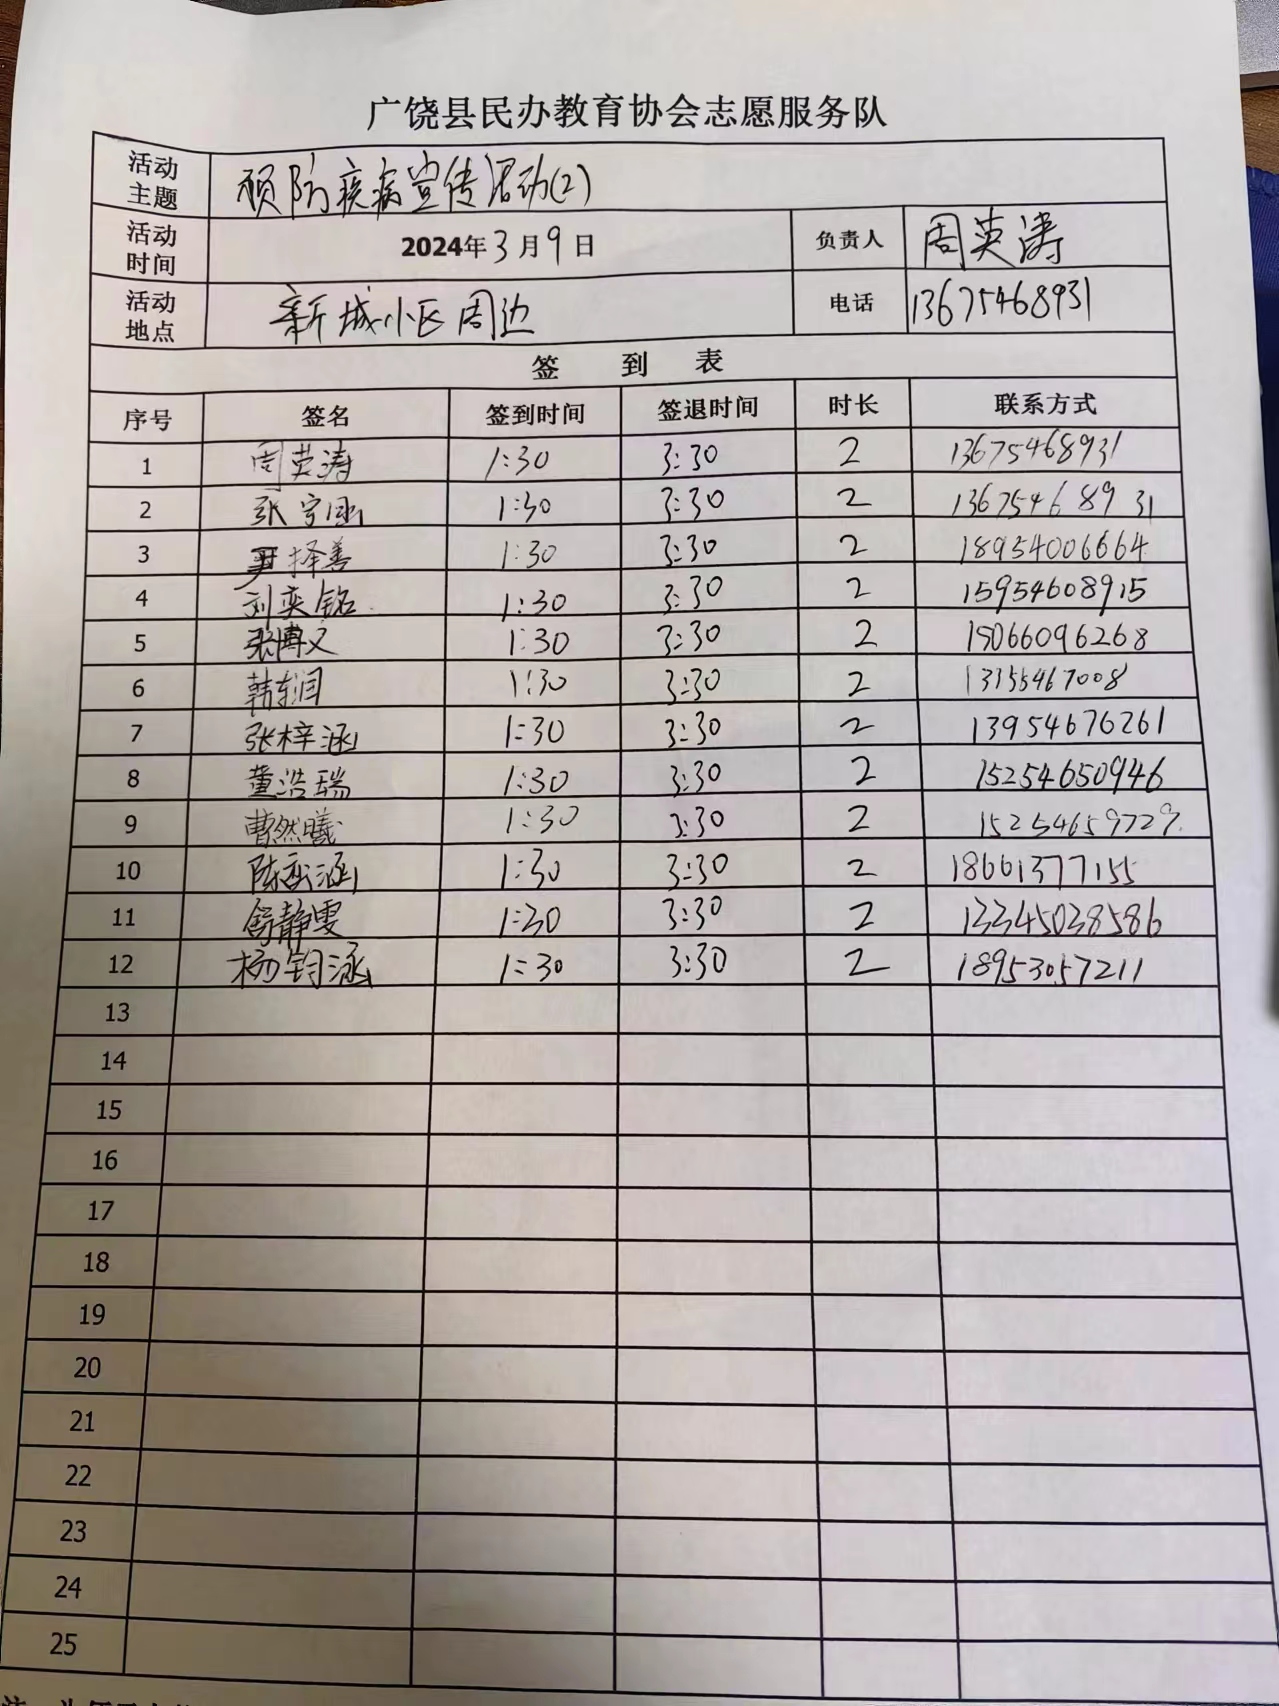 广饶县民办教育协会志愿服务队
活动主题 预防疾病宣传活动(2)
活动时间 2024年3月9日 负责人 周英涛
活动地点 新城小区周边 电话 13675468931
签 到 表
序号 签名 签到时间 签退时间 时长 联系方式
1 周英涛 1:30 3:30 2 13675468931
2 张宇涵 1:30 3:30 2 13675468931
3 尹择善 1:30 3:30 2 18954006664
4 刘奕铭 1:30 3:30 2 15954608915
5 张博文 1:30 3:30 2 15066096268
6 韩东润 1:30 3:30 2 13155467008
7 张梓涵 1:30 3:30 2 13954676261
8 董浩瑞 1:30 3:30 2 15254650946
9 曹然曦 1:30 3:30 2 15254659729
10 1:30 3:30 2 18661377155
11 舒静雯 1:30 3:30 2 13345038586
12 杨钧涵 1:30 3:30 2 18953057211
13
14
15
16
17
18
19
20
21
22
23
24
25